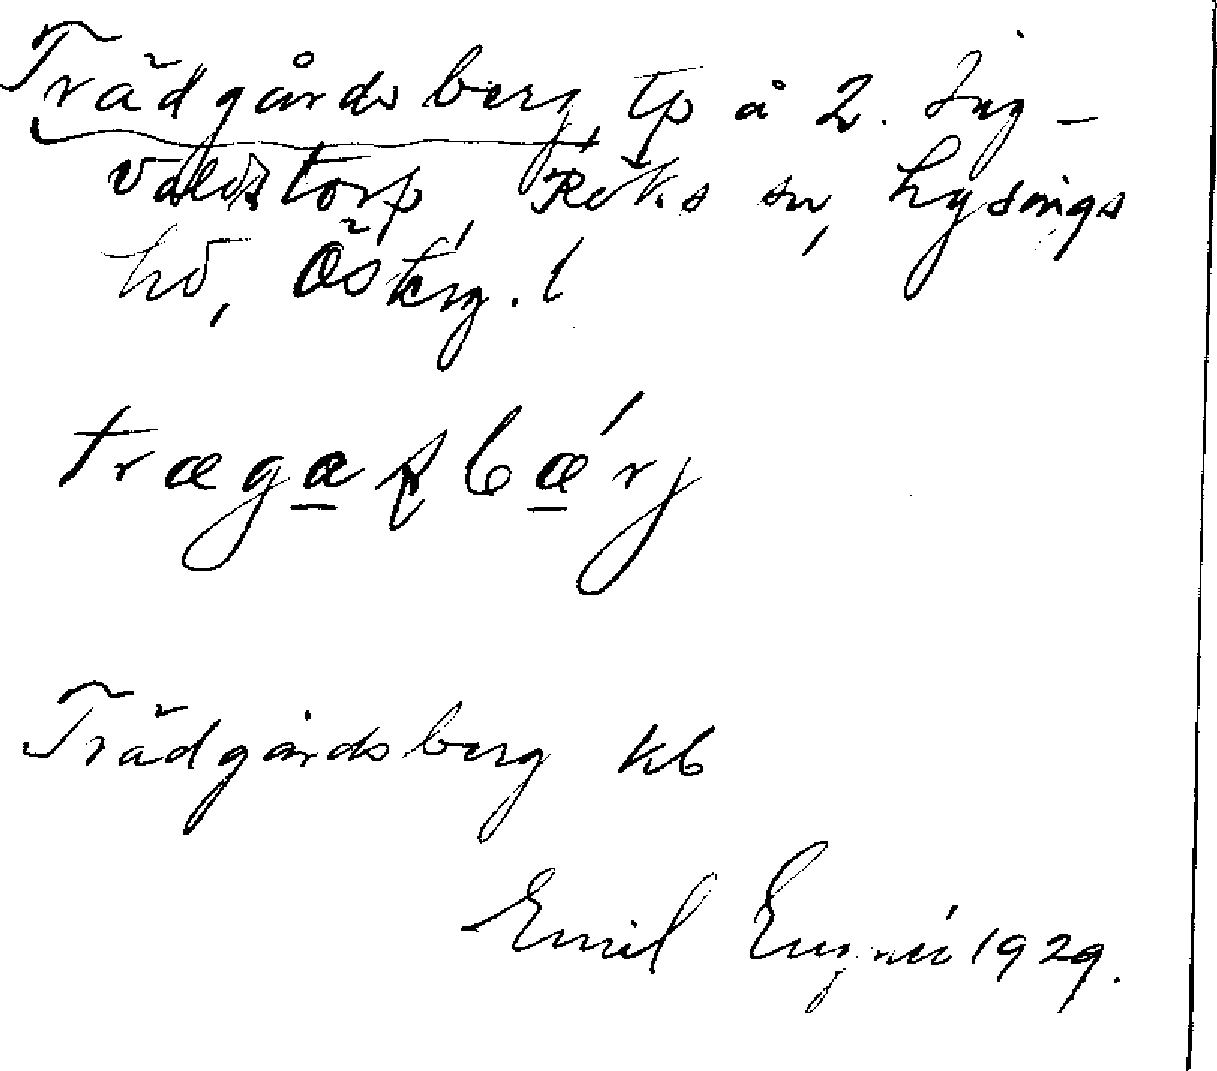 Trädgårdsberg, tp å 2. Ing-
valdstorp, Röks sn, Lysings
hd, Österg. l
trægaʂbærj
Trädgårdsberg kb
Emil 1929.